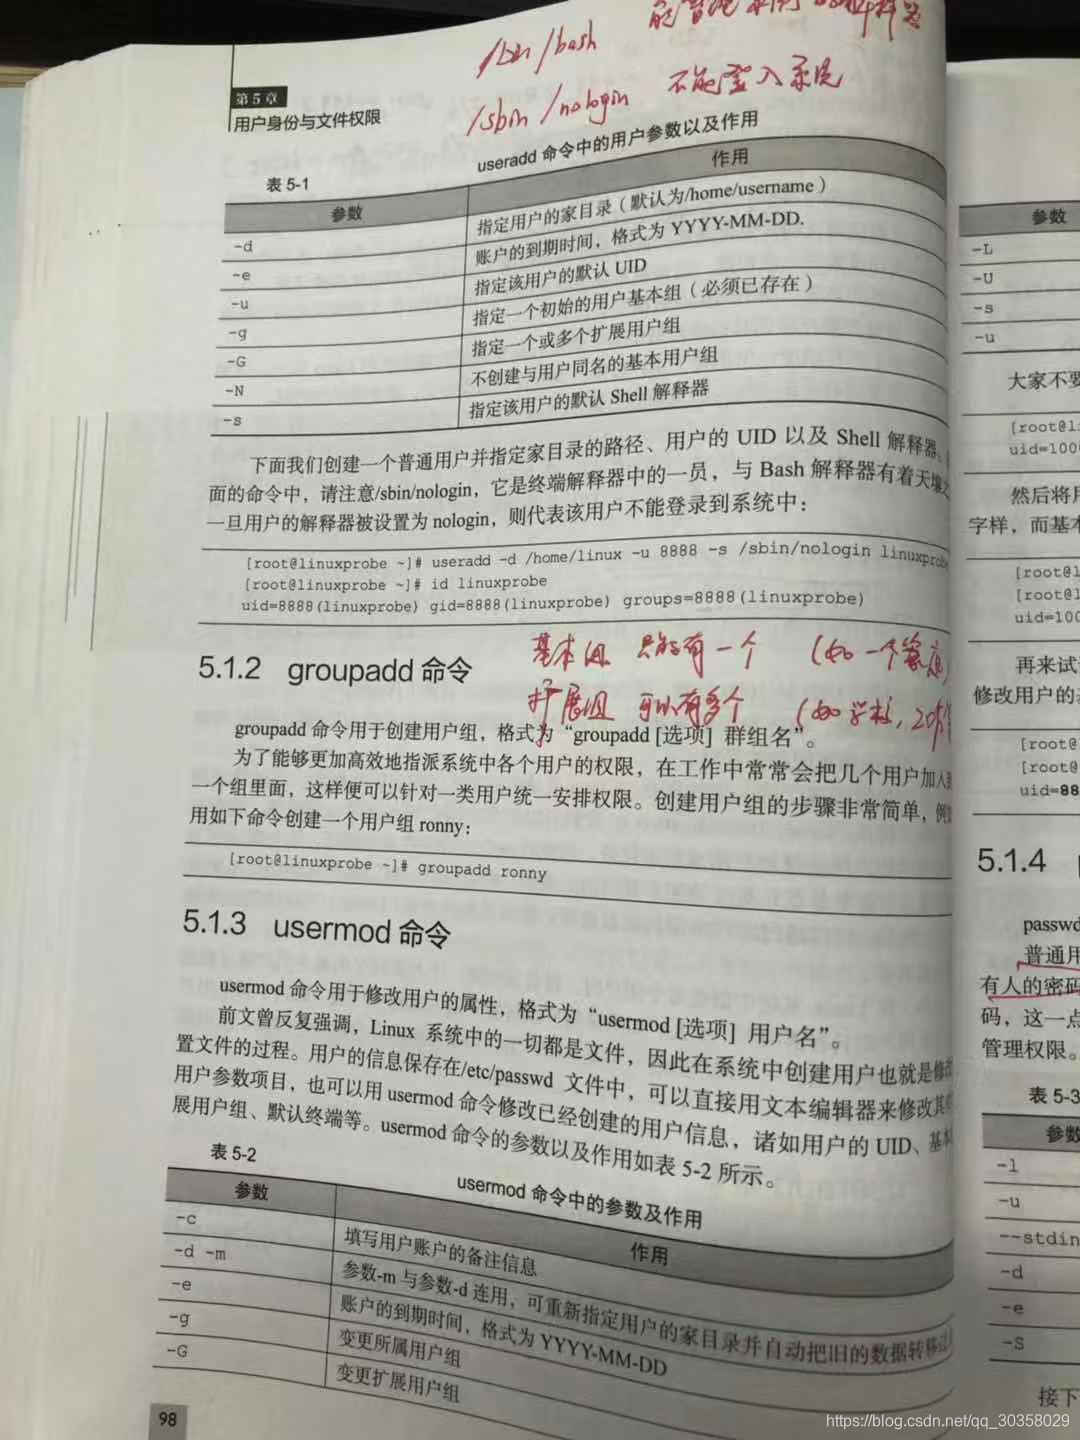 /bin/bash 能管理
/sbin/nologin 不能登入系统
第5章
用户身份与文件权限
表 5-1
useradd 命令中的用户参数以及作用
参数 作用
-d 指定用户的家目录（默认为/home/username）
-e 账户的到期时间，格式为 YYYY-MM-DD.
-u 指定该用户的默认 UID
-g 指定一个初始的用户基本组（必须已存在）
-G 指定一个或多个扩展用户组
-N 不创建与用户同名的基本用户组
-s 指定该用户的默认 Shell 解释器
下面我们创建一个普通用户并指定家目录的路径、用户的 UID 以及 Shell 解释器。
面的命令中，请注意/sbin/nologin，它是终端解释器中的一员，与 Bash 解释器有着天壤之
一旦用户的解释器被设置为 nologin，则代表该用户不能登录到系统中：
[root@linuxprobe ~]# useradd -d /home/linux -u 8888 -s /sbin/nologin linuxprobe
[root@linuxprobe ~]# id linuxprobe
uid=8888(linuxprobe) gid=8888(linuxprobe) groups=8888(linuxprobe)
基本组 只能有一个 （如一个家庭）
5.1.2 groupadd 命令
扩展组 可以有多个 （如学校，
groupadd 命令用于创建用户组，格式为“groupadd [选项] 群组名”。
为了能够更加高效地指派系统中各个用户的权限，在工作中常常会把几个用户加入到
一个组里面，这样便可以针对一类用户统一安排权限。创建用户组的步骤非常简单，例如
用如下命令创建一个用户组 ronny：
[root@linuxprobe ~]# groupadd ronny
5.1.3 usermod 命令
usermod 命令用于修改用户的属性，格式为“usermod [选项] 用户名”。
前文曾反复强调，Linux 系统中的一切都是文件，因此在系统中创建用户也就是修改
置文件的过程。用户的信息保存在/etc/passwd 文件中，可以直接用文本编辑器来修改其中
用户参数项目，也可以用 usermod 命令修改已经创建的用户信息，诸如用户的 UID、基本
展用户组、默认终端等。usermod 命令的参数以及作用如表 5-2 所示。
表 5-2
usermod 命令中的参数及作用
参数 作用
-c 填写用户账户的备注信息
-d -m 参数-m 与参数-d 连用，可重新指定用户的家目录并自动把旧的数据转移过
-e 账户的到期时间，格式为 YYYY-MM-DD
-g 变更所属用户组
-G 变更扩展用户组
98
参数
-L
-U
-s
-u
大家不要
[root@li
uid=1000
然后将用
字样，而基本
[root@l
[root@l
uid=100
再来试
修改用户的
[root@
[root@
uid=88
5.1.4
passwd
普通用
有人的密码
码，这一点
管理权限。
表 5-3
参数
-l
-u
--stdin
-d
-e
-S
接下
https://blog.csdn.net/qq_30358029